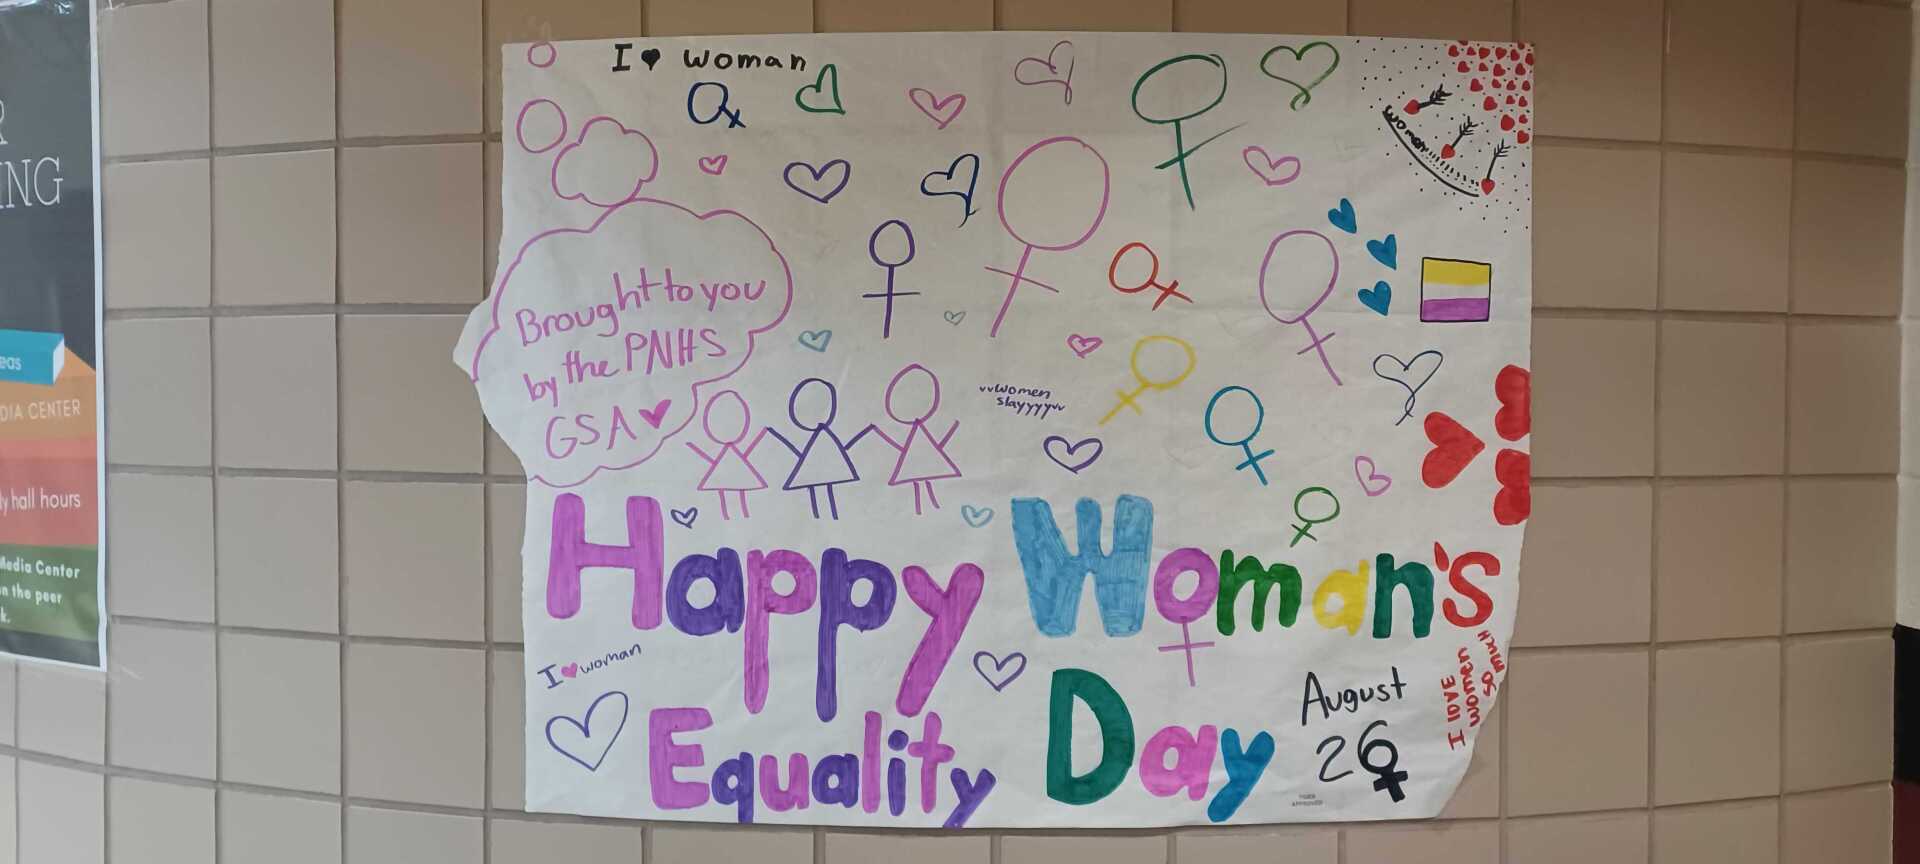 I ♥ woman
woman
Brought to you
by the PNHS
GSA ♥
vvwomen
slayyyyvv
Happy Woman's
I ♥ woman
Equality Day
August
26
I lOVE
women
so much
TIGER
APPROVED
NG
eas
DIA CENTER
ly hall hours
Media Center
n the peer
k.